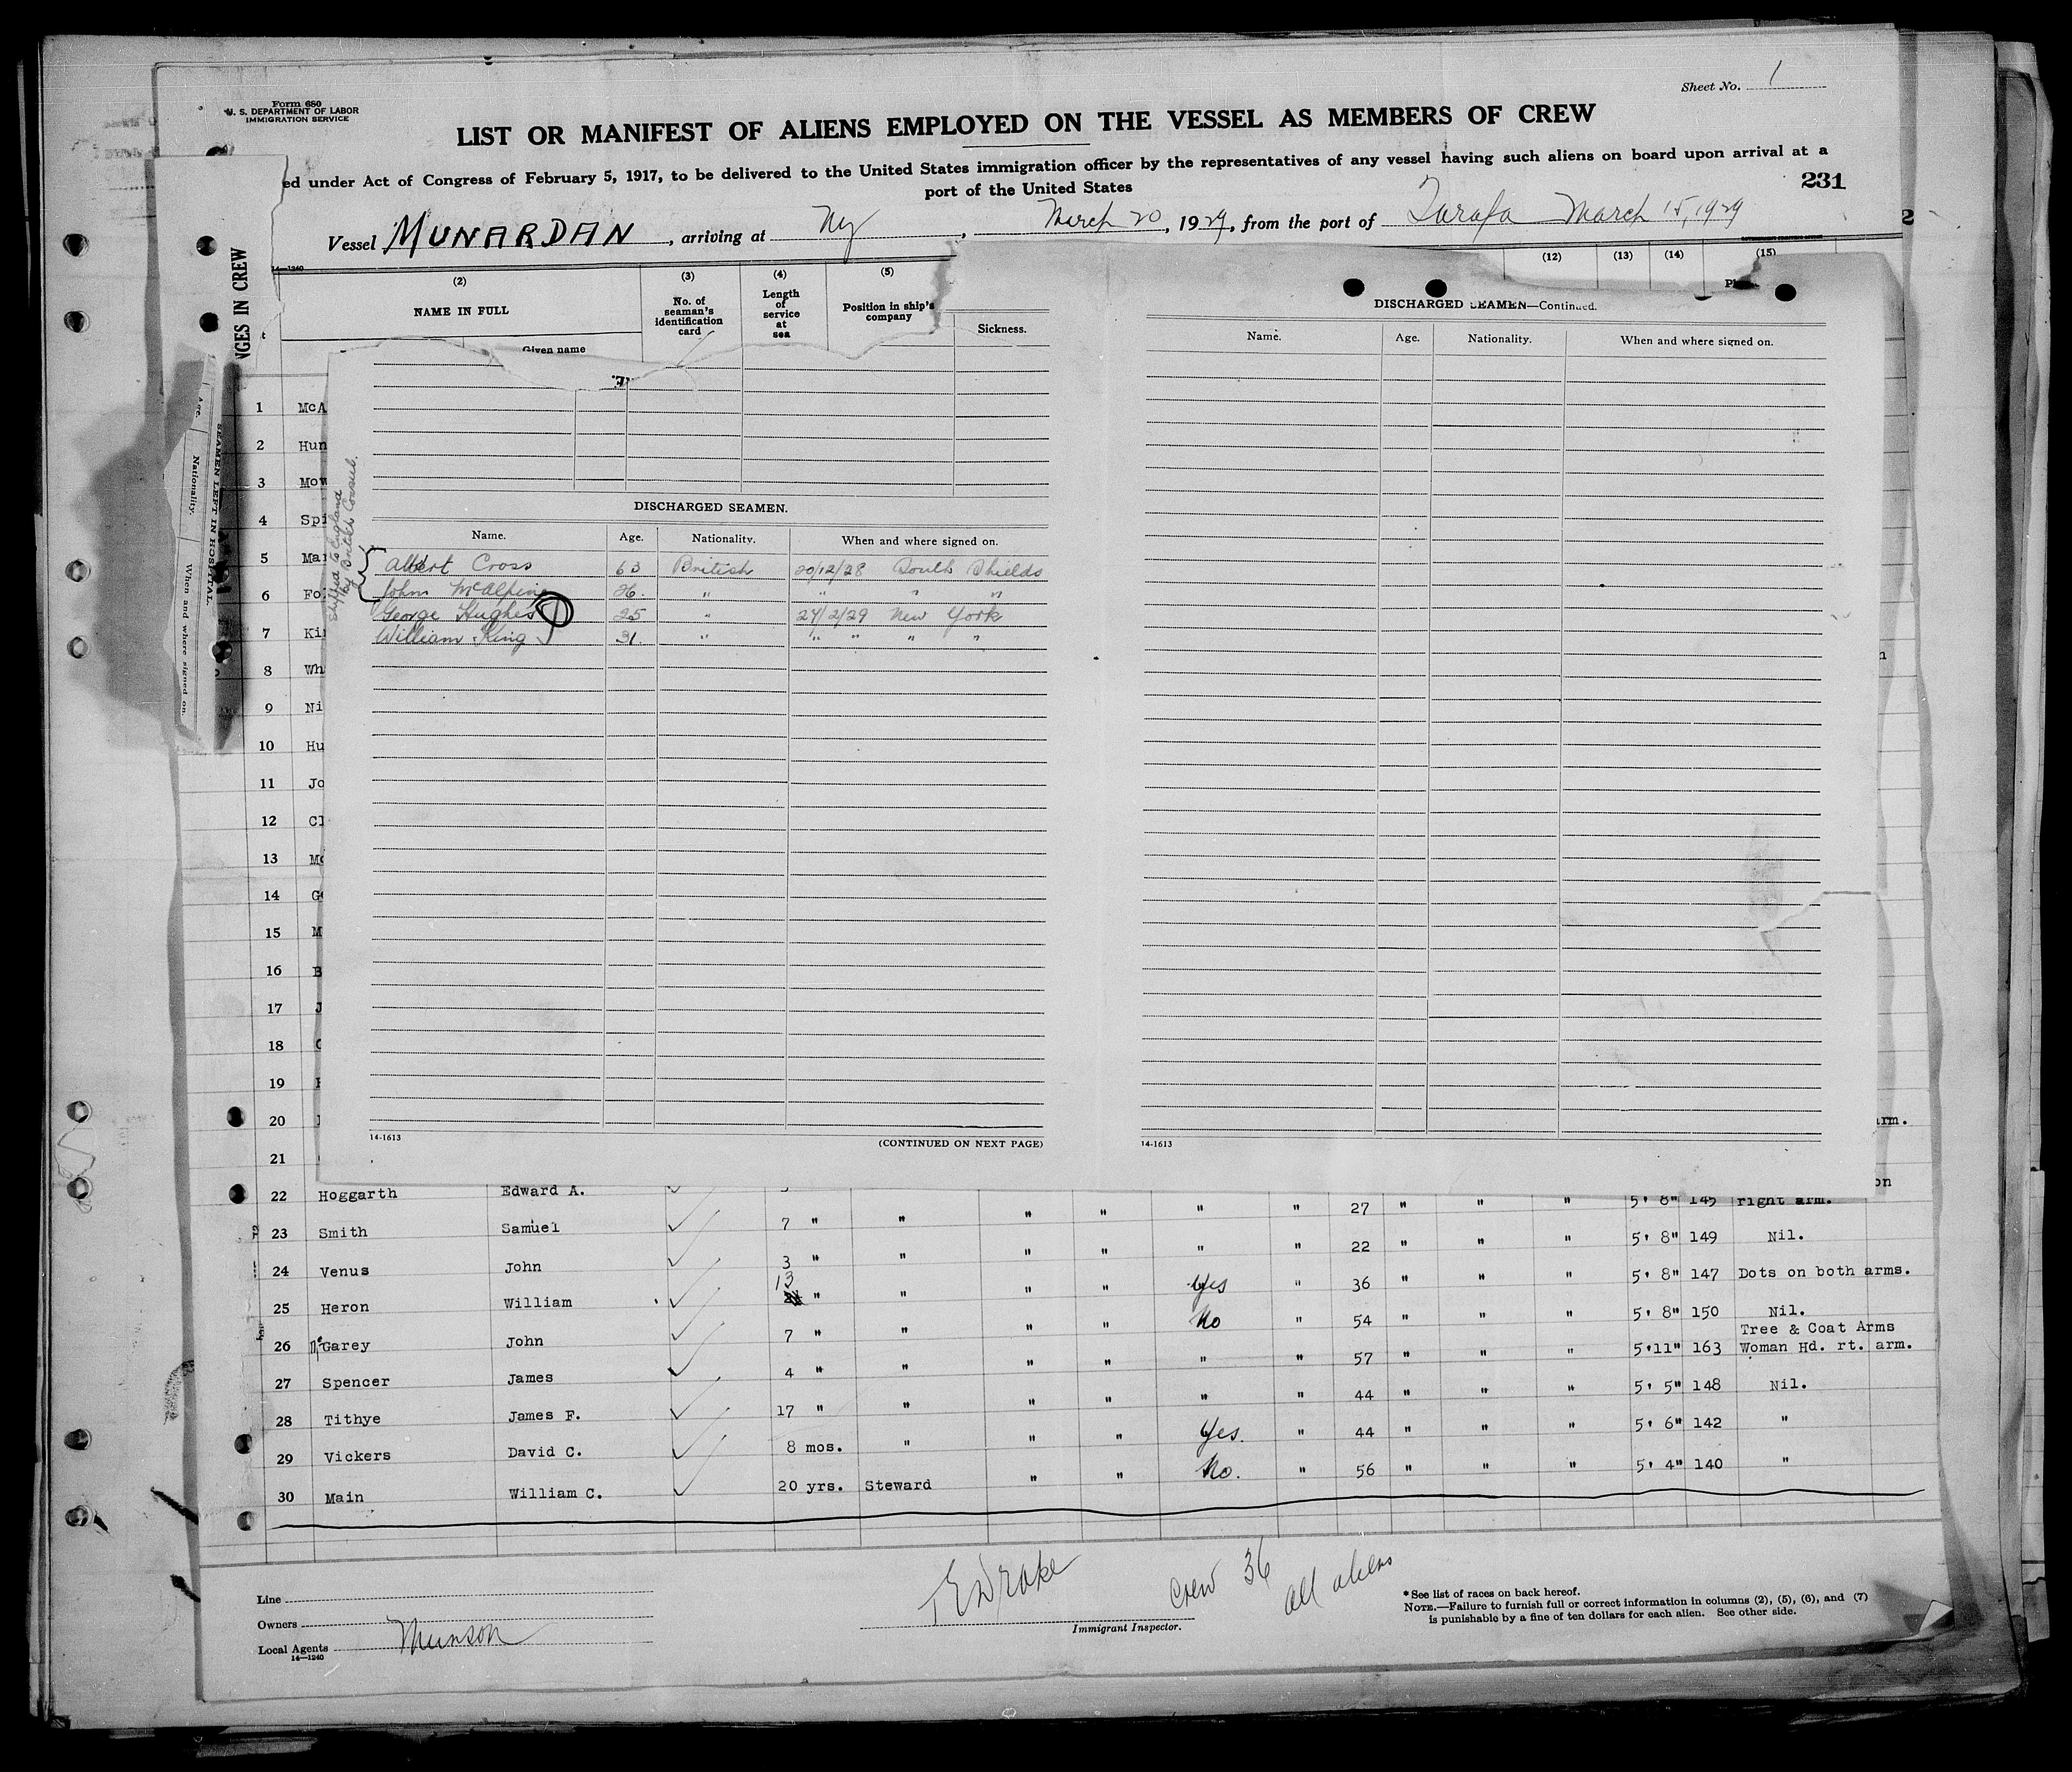 Sheet No. 1
Form 680
U. S. DEPARTMENT OF LABOR
IMMIGRATION SERVICE
LIST OR MANIFEST OF ALIENS EMPLOYED ON THE VESSEL AS MEMBERS OF CREW
ed under Act of Congress of February 5, 1917, to be delivered to the United States immigration officer by the representatives of any vessel having such aliens on board upon arrival at a
port of the United States
231
2
Vessel MUNARDAN, arriving at Ny, March 20, 1929, from the port of Tarafa March 15, 1929
14—1240
NGES IN CREW
(2) (3) (4) (5) (12) (13) (14) (15)
NAME IN FULL
No. of seaman's identification card
Length of service at sea
Position in ship's company
Given name
Sickness.
SEAMEN LEFT IN HOSPITAL.
Age. Nationality. When and where signed on.
DISCHARGED SEAMEN.
Name. Age. Nationality. When and where signed on.
Shipped to England
by British Consul.
Albert Cross 63 British 20/12/28 South Shields
John McAlpine 26. " " " "
George Hughes 25 " 27/2/29 New York
William King 31. " " " " "
14-1613 (CONTINUED ON NEXT PAGE)
DISCHARGED SEAMEN—Continued.
Name. Age. Nationality. When and where signed on.
14-1613
1 McA
2 Hun
3 Mow
4 Spi
5 Mar
6 Fo
7 Kin
8 Wh
9 Ni
10 Hu
11 Jo
12 Cl
13 Mc
14 G
15 M
16 B
17 J
18 C
19
20 arm.
21
22 Hoggarth Edward A. " " 27 " " " 5' 8" 145 right arm. on
23 Smith Samuel 7 " " " " " " 22 " " " 5' 8" 149 Nil.
24 Venus John 3 " " " " Yes " 36 " " " 5' 8" 147 Dots on both arms.
25 Heron William 13 " " " " No " 54 " " " 5' 8" 150 Nil.
26 Mc Garey John 7 " " " " " " 57 " " " 5'11" 163 Tree & Coat Arms
Woman Hd. rt. arm.
27 Spencer James 4 " " " " " " 44 " " " 5' 5" 148 Nil.
28 Tithye James F. 17 " " " " Yes. " 44 " " " 5' 6" 142 "
29 Vickers David C. 8 mos. " " " No. " 56 " " " 5' 4" 140 "
30 Main William C. 20 yrs. Steward
Line
Owners
Local Agents Munson
14—1240
T E Drake
Immigrant Inspector.
Crew 36
all aliens
*See list of races on back hereof.
NOTE.—Failure to furnish full or correct information in columns (2), (5), (6), and (7)
is punishable by a fine of ten dollars for each alien. See other side.